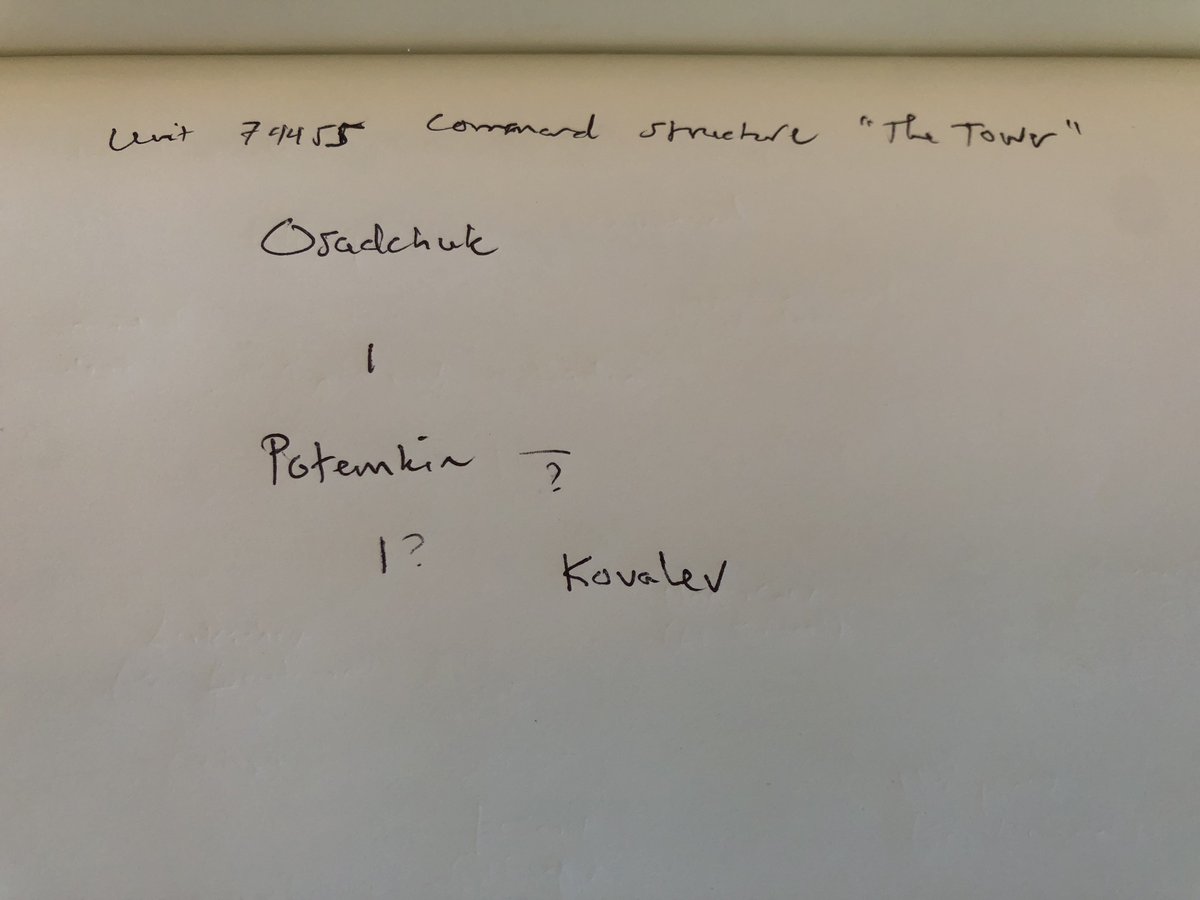 Unit 74455 Command structure "The Tower"
Osadchuk
|
Potemkin —
?
| ?
Kovalev